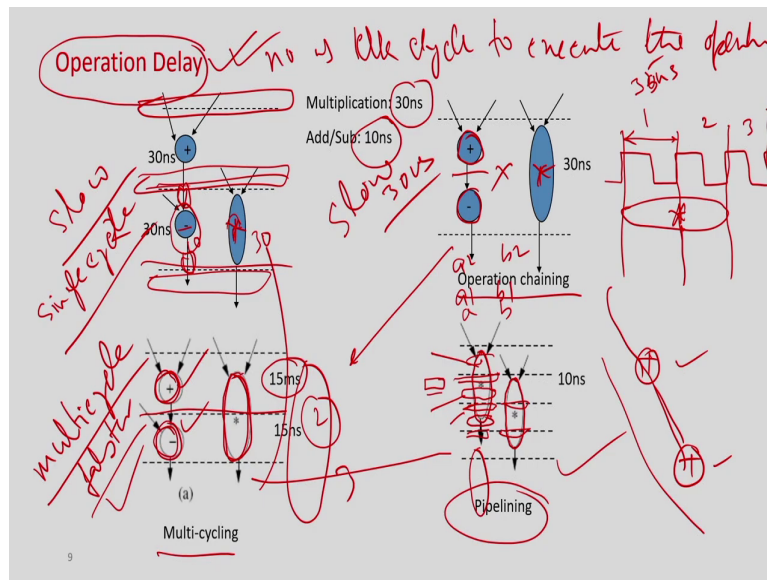 Operation Delay
no of clk cycle to execute the
30ns
Multiplication: 30ns
Add/Sub: 10ns
1
2
3
+
30ns
slow
single cycle
30ns
-
*
30
slow
30ns
+
-
*
x
30ns
*
a2 b2
Operation chaining
a1 b1
a b
multicycle
faster
+
-
*
15ms
15ns
2
(a)
Multi-cycling
*
*
10ns
Pipelining
+
+
9